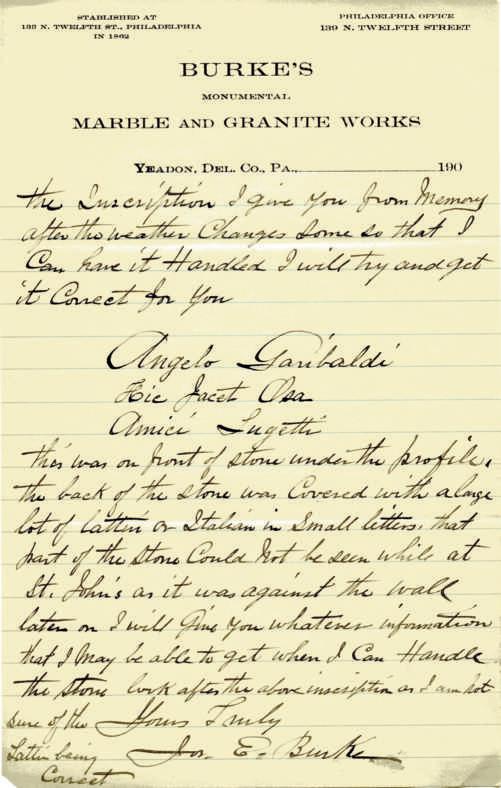 STABLISHED AT
139 N. TWELFTH ST., PHILADELPHIA
IN 1862
PHILADELPHIA OFFICE
139 N. TWELFTH STREET
BURKE'S
MONUMENTAL
MARBLE AND GRANITE WORKS
YEADON, DEL. CO., PA., 190
the Inscription I give you from Memory
after the weather Changes Some so that I
Can have it Handled I will try and get
it Correct for You
Angelo Garibaldi
Hic Jacet Osa
Amici Lugetti
this was on front of stone under the profile,
the back of the stone was Covered with a large
lot of lattin or Italian in Small letters. that
part of the stone Could Not be seen while at
St. John's as it was against the wall
later on I will Give You whatever information
that I May be able to get when I Can Handle
the stone look after the above inscription as I am not
sure of the Yours Truly
Lattin being Jos. E. Burke
Correct